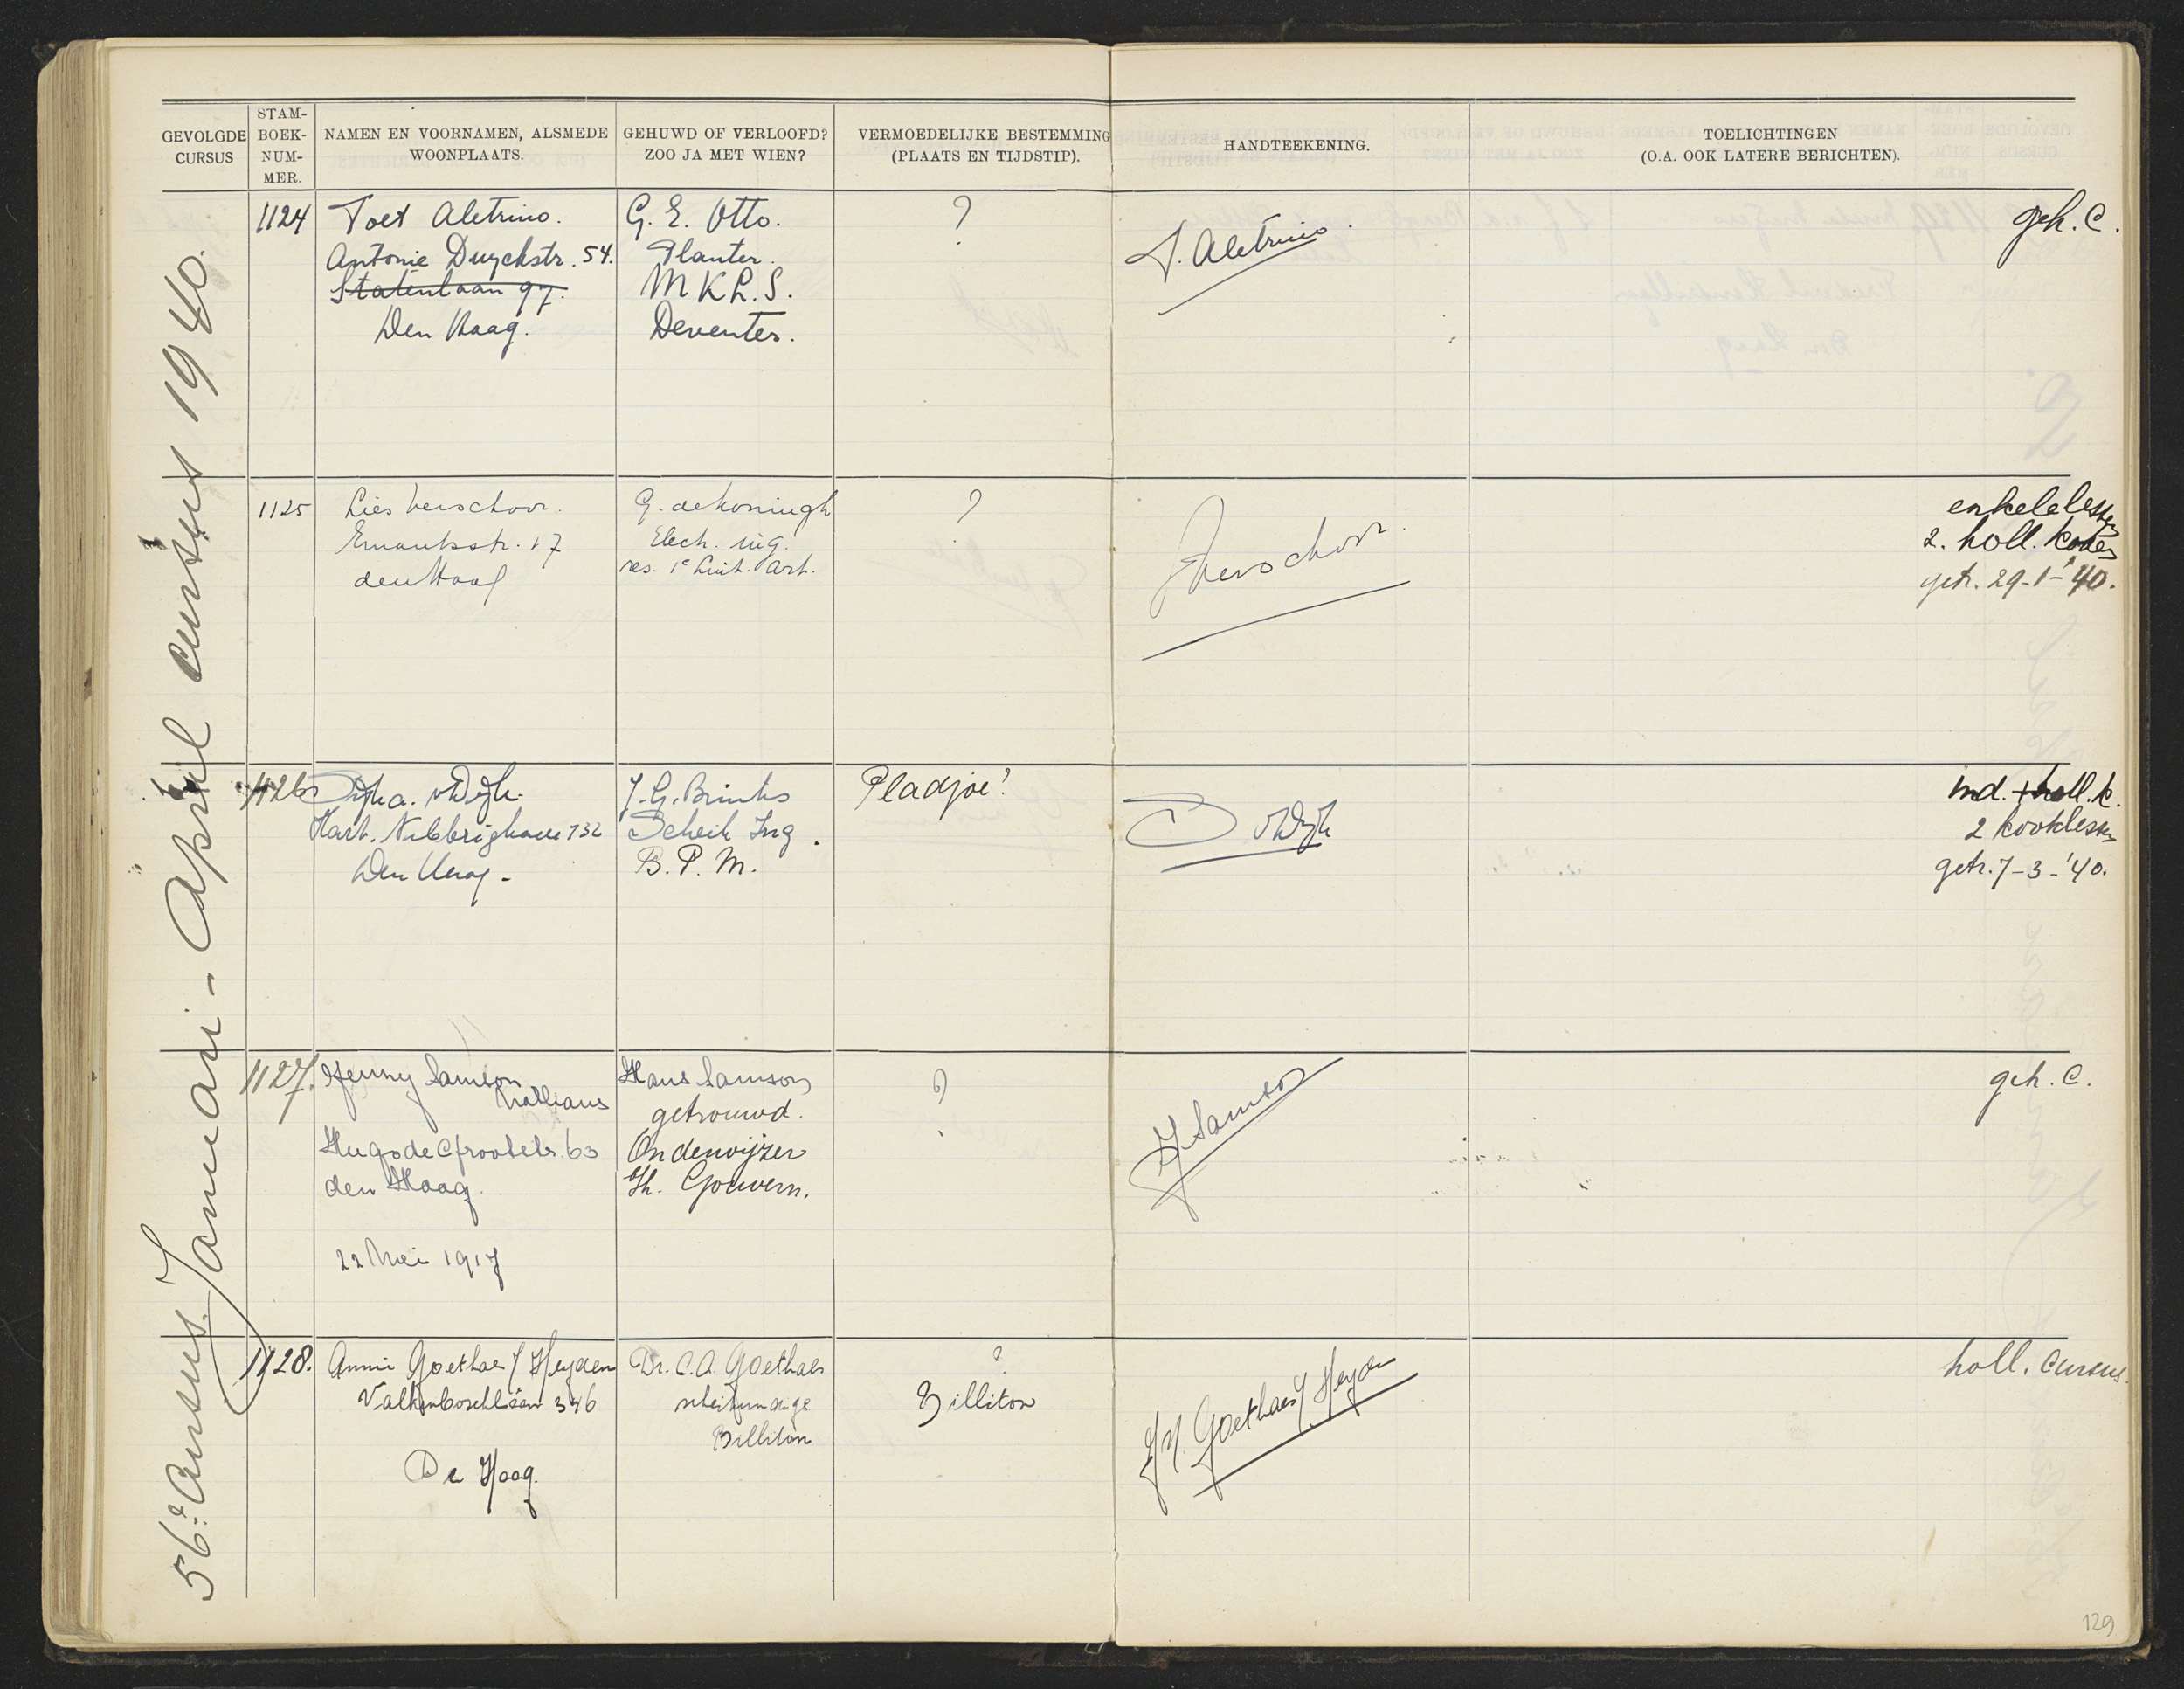 GEVOLGDE CURSUS
STAM-BOEK-NUM-MER.
NAMEN EN VOORNAMEN, ALSMEDE WOONPLAATS.
GEHUWD OF VERLOOFD? ZOO JA MET WIEN?
VERMOEDELIJKE BESTEMMING (PLAATS EN TIJDSTIP).
HANDTEEKENING.
TOELICHTINGEN (O.A. OOK LATERE BERICHTEN).
56e Cursus. Januari - April cursus 1940.
1124
Toet Aletrino.
Antonie Duyckstr. 54.
Statenlaan 97.
Den Haag.
G. E. Otto.
Planter.
M K L. S.
Deventer.
?
T. Aletrino.
geh. C.
1125
Lies Verschoor.
Emantsstr. 17
den Haag
G. de Koningh
Elech. ing.
res. 1e Luit. Art.
?
Verschoor.
enkele lessen
2. holl. koken
getr. 29-1-'40.
1126
v Dijk.
132
Den Haag -
J. G. Brinks
Scheik Ing.
B. P. M.
Pladjoe?
D v Dijk
ind. + holl. k.
2 kooklessen
getr. 7-3-'40.
1127.
Jenny Samson
Hugo de Grootstr. 63
den Haag.
22 Mei 1917
Hans Samson
getrouwd.
Onderwijzer
Gouvern.
?
J Samson
geh. C.
1128.
Annie Goethals / Heyden
Valkenboschlaan 346
De Haag.
Dr. C. A. Goethals
scheikundige
Billiton
?
Billiton
Goethals / Heyden
holl. Cursus.
129